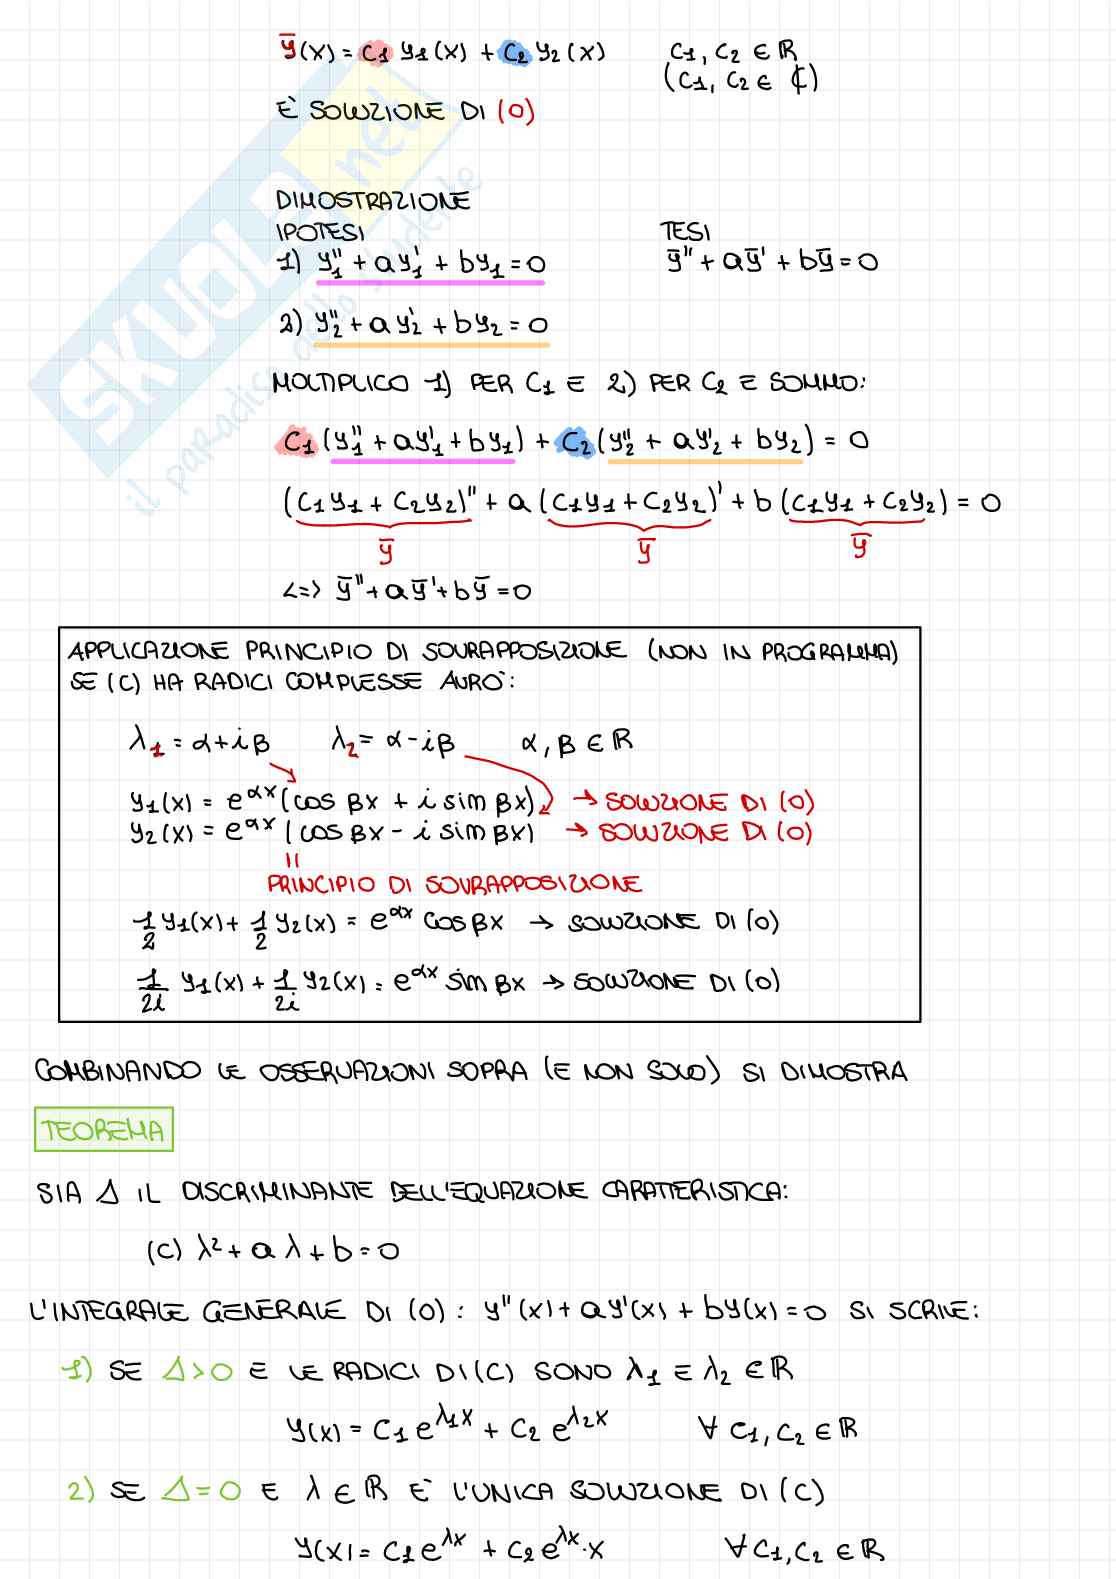 ȳ(x) = C1 y1(x) + C2 y2(x)   C1, C2 ∈ ℝ
(C1, C2 ∈ ℂ)
È SOLUZIONE DI (0)
DIMOSTRAZIONE
IPOTESI   TESI
1) y1'' + a y1' + b y1 = 0   ȳ'' + aȳ' + bȳ = 0
2) y2'' + a y2' + b y2 = 0
MOLTIPLICO 1) PER C1 E 2) PER C2 E SOMMO:
C1 (y1'' + a y1' + b y1) + C2 (y2'' + a y2' + b y2) = 0
(C1 y1 + C2 y2)'' + a (C1 y1 + C2 y2)' + b (C1 y1 + C2 y2) = 0
ȳ   ȳ   ȳ
<=> ȳ'' + aȳ' + bȳ = 0
APPLICAZIONE PRINCIPIO DI SOVRAPPOSIZIONE (NON IN PROGRAMMA)
SE (C) HA RADICI COMPLESSE AVRÒ:
λ1 = α + iβ   λ2 = α - iβ   α, β ∈ ℝ
y1(x) = e^αx (cos βx + i sin βx) → SOLUZIONE DI (0)
y2(x) = e^αx (cos βx - i sin βx) → SOLUZIONE DI (0)
=
PRINCIPIO DI SOVRAPPOSIZIONE
1/2 y1(x) + 1/2 y2(x) = e^αx cos βx → SOLUZIONE DI (0)
1/2i y1(x) + 1/2i y2(x) = e^αx sin βx → SOLUZIONE DI (0)
COMBINANDO LE OSSERVAZIONI SOPRA (E NON SOLO) SI DIMOSTRA
TEOREMA
SIA Δ IL DISCRIMINANTE DELL'EQUAZIONE CARATTERISTICA:
(C) λ² + a λ + b = 0
L'INTEGRALE GENERALE DI (0): y''(x) + a y'(x) + b y(x) = 0 SI SCRIVE:
1) SE Δ > 0 E LE RADICI DI (C) SONO λ1 E λ2 ∈ ℝ
y(x) = C1 e^λ1x + C2 e^λ2x   ∀ C1, C2 ∈ ℝ
2) SE Δ = 0 E λ ∈ ℝ È L'UNICA SOLUZIONE DI (C)
y(x) = C1 e^λx + C2 e^λx · x   ∀ C1, C2 ∈ ℝ
SKUOLA.net
il paradiso dello studente